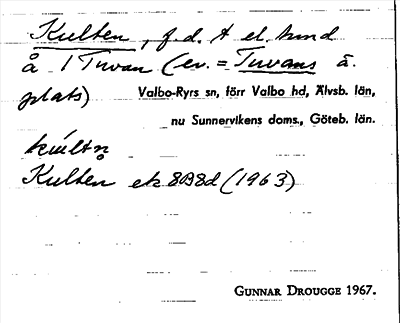 Kulten, f.d. t el. hund
å 1 Tuvan (ev. = Tuvans ä.
plats) Valbo-Ryrs sn, förr Valbo hd, Älvsb. län,
nu Sunnervikens doms., Göteb. län.
kúltn̥
Kulten ek 8B8d (1963)
GUNNAR DROUGGE 1967.